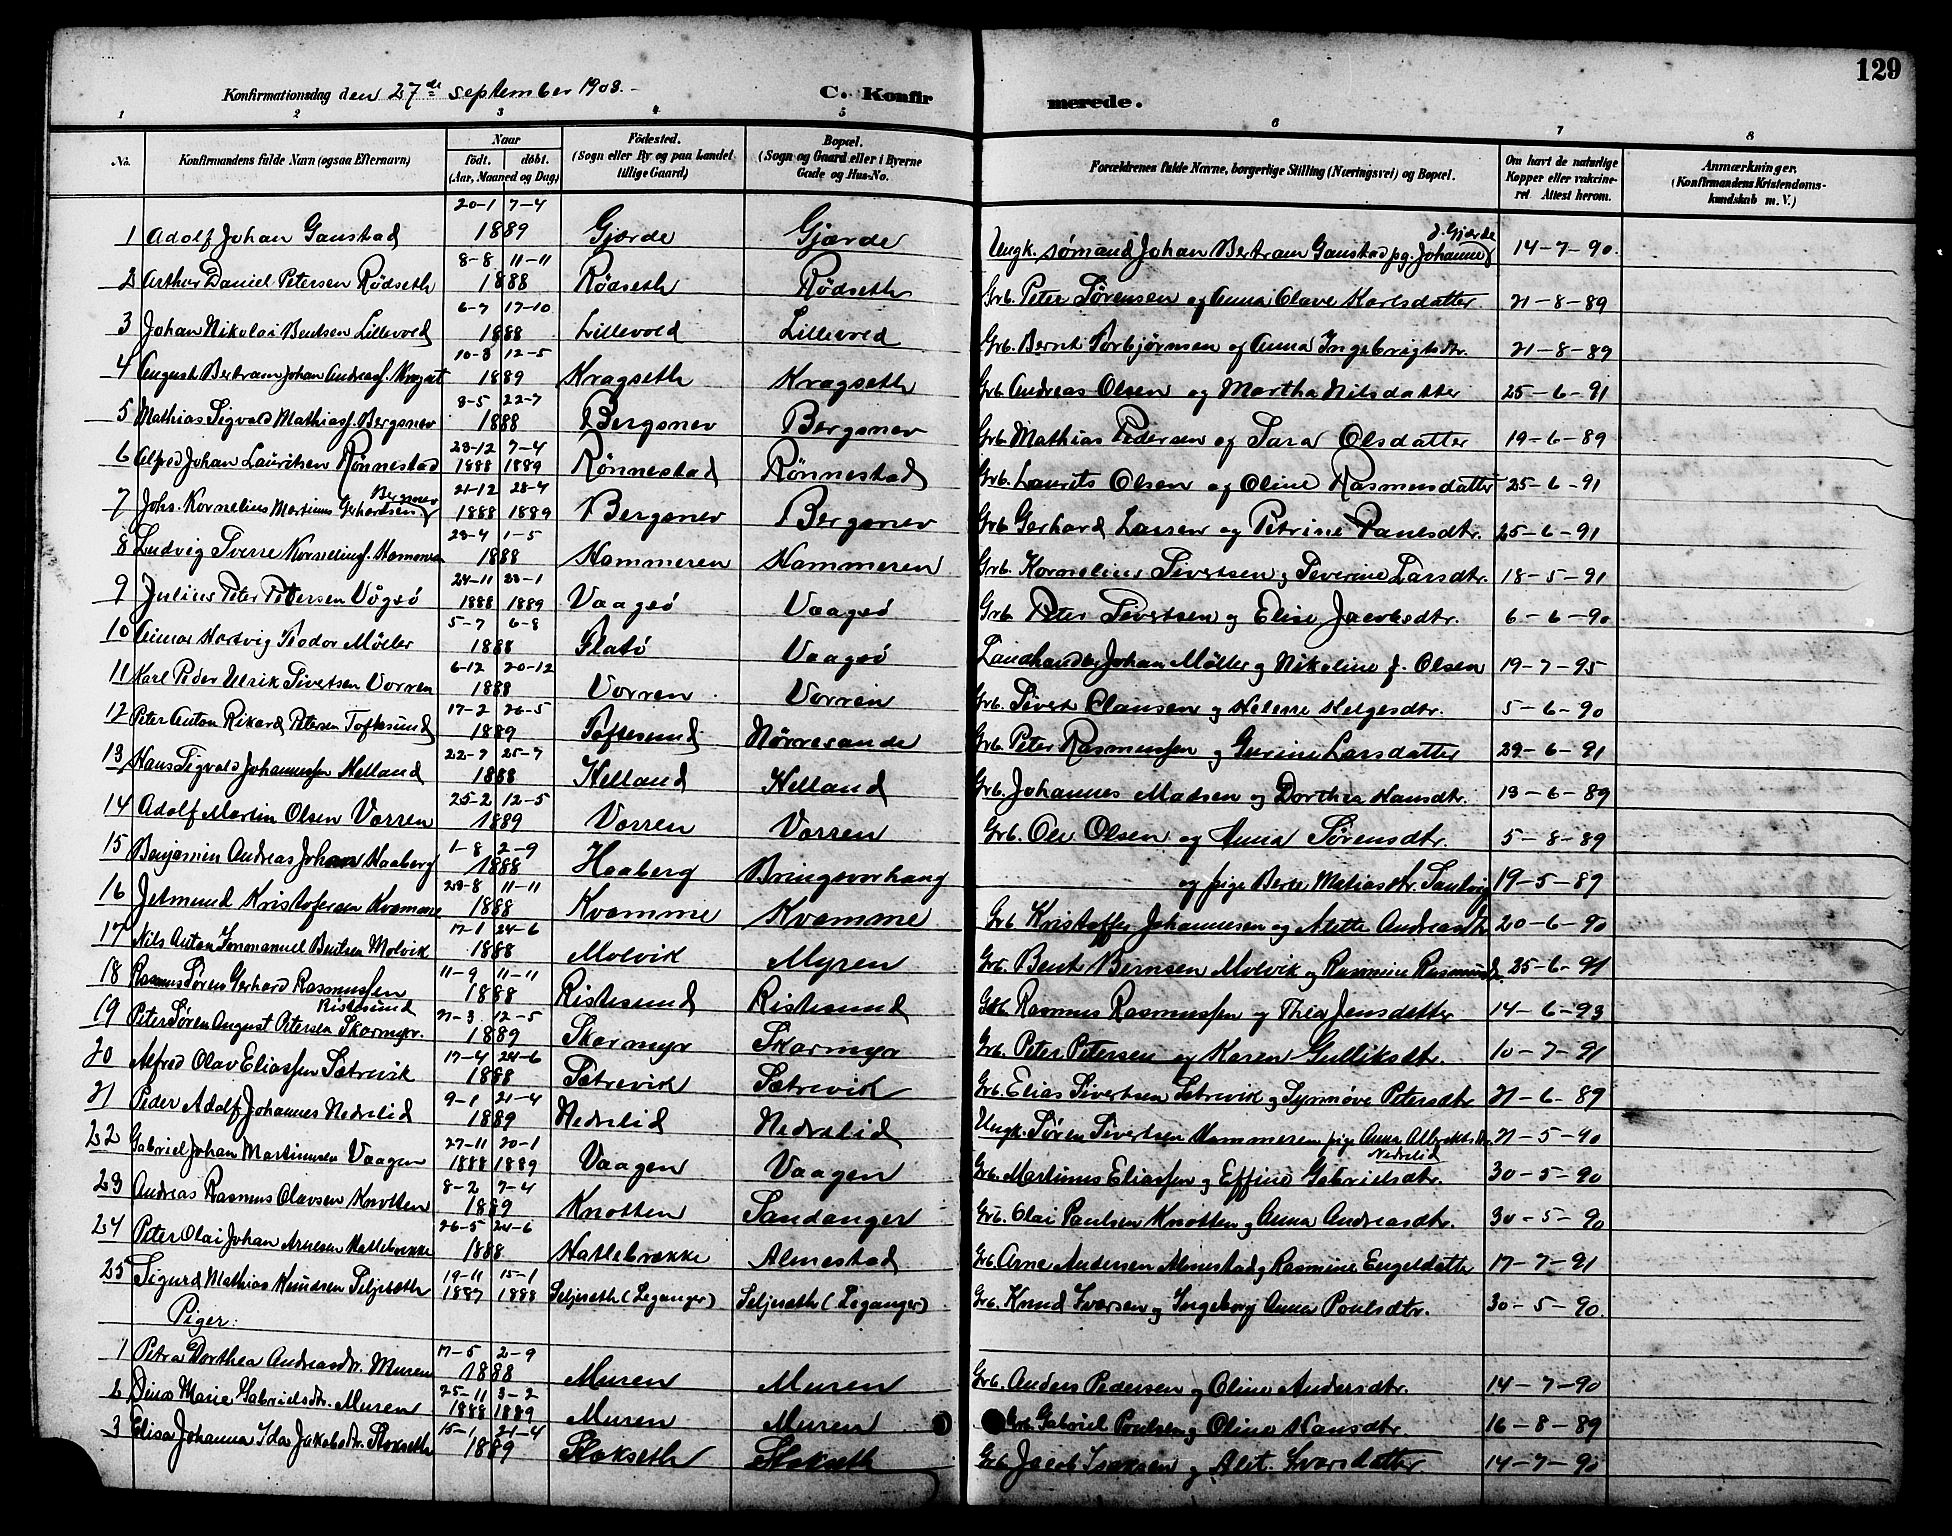 129
Konfirmationsdag den 27de september 1903.
C. Konfirmerede.
1 2 3 4 5 6 7 8
No. Konfirmandens fulde Navn (ogsaa Efternavn) Naar født. døbt. (Aar, Maaned og Dag) Födested. (Sogn eller By og paa Landet tillige Gaard) Bopæl. (Sogn og Gaard eller i Byerne Gade og Hus-No. Forældrenes fulde Navne, borgerlige Stilling (Næringsvei) og Bopæl. Om havt de naturlige Kopper eller vakcineret Attest herom. Anmærkninger. (Konfirmandens Kristendomskundskab m. V.)
1 Adolf Johan Ganstad 20-1 7-4 1889 Gjærde Gjærde Ungk. sømand Johan Bertram Ganstad pg. Johanne J. Gjærde 14-7-90.
2 Arthur Daniel Petersen Rødseth 8-8 11-11 1888 Rødseth Rødseth Grb. Peter Sørensen og Anna Olave Karlsdatter 21-8-89
3 Johan Nikolai Bentsen Lillevold 6-7 17-10 1888 Lillevold Lillevold Grb. Bernt Torbjørnsen og Anna Ingebrigtsdtr. 21-8-89
4 August Bertram Johan Andreas. Kragset 10-8 12-5 1889 Kragseth Kragseth Grb. Andreas Olsen og Martha Nilsdatter 25-6-91
5 Mathias Sigvald Mathias. Bergsnev 8-5 22-7 1888 Bergsnev Bergsnev Grb. Mathias Pedersen og Sara Olsdatter 19-6-89
6 Alfred Johan Lauritsen Rønnestad 23-12 7-4 1888 1889 Rønnestad Rønnestad Grb. Laurits Olsen og Oline Rasmusdatter 25-6-91
7 Johs. Kornelius Martinus Gerhardsen Bergsnev 21-12 28-4 1888 1889 Bergsnev Bergsnev Grb. Gerhard Larsen og Petrine Paulsdtr. 25-6-91
8 Ludvig Sverre Korneliusf. Hammeren 23-4 1-5 1888 Hammeren Hammeren Grb. Kornelius Sivertsen og Severine Larsdtr. 18-5-91
9 Julius Peter Petersen Vågsø 24-11 23-1 1888 1889 Vaagsø Vaagsø Grb. Peter Sivertsen og Elise Jacobsdtr. 6-6-90
10 Hartvig Teodor Møller 5-7 6-8 1888 Flatø Vaagsø Landhandler Johan Møller og Nikoline f. Olsen 19-7-95
11 Karl Peder Ulrik Sivertsen Vorren 6-12 20-12 1888 Vorren Vorren Grb. Sivert Clausen og Helene Helgesdtr. 5-6-90
12 Peter Anton Rikard Petersen Toftesund 17-2 26-5 1889 Toftesund Nørresande Grb. Peter Rasmussen og Gurine Larsdatter 29-6-91
13 Hans Sigvald Johannessen Helland 22-7 25-7 1888 Helland Helland Grb. Johannes Madsen og Dorthea Hansdtr. 13-6-89
14 Adolf Martin Olsen Vorren 25-2 12-5 1889 Vorren Vorren Grb. Ole Olsen og Anna Sørensdtr. 5-8-89
15 Benjamin Andreas Johan Haaberg 1-8 2-9 1888 Haaberg Bringsvorhaug og pige Berte Matiasdtr. Sandvig 19-5-89
16 Jetmund Kristofersen Kvamme 23-8 11-11 1888 Kvamme Kvamme Grb Kristoffer Johannesen og Alette Andreasdtr 20-6-90
17 Nils Anton Immanuel Bentsen Molvik 17-1 24-6 1888 Molvik Myren Grb. Bent Berntsen Molvik og Rasmine Rasmusd. 25-6-91
18 Rasmus Søren Gerhard Rasmussen Ristesund 11-9 11-11 1888 Ristesund Ristesund Grb. Rasmus Rasmussen og Thea Jensdatter 14-6-93
19 Peter Søren August Petersen Skarmyr. 21-3 12-5 1889 Skarmyr Skarmyr Grb. Peter Petersen og Karen Gulliksdtr. 10-7-91
20 Alfred Olav Eliassen Sætrevik 17-4 24-6 1888 Sætrevik Sætrevik Grb. Elias Sivertsen Sætrevik og Synnøve Petersdtr 21-6-89
21 Peder Adolf Johannes Nedrelid 9-1 21-4 1889 Nedrelid Nedrelid Ungk. Søren Sivertsen Hammeren pige Anna Albriktsdtr. Nedrelid 21-5-90
22 Gabriel Johan Martinusen Vaagen 27-11 20-1 1888 1889 Vaagen Vaagen Grb. Martinus Eliassen og Effine Gabrielsdtr. 30-5-90
23 Andreas Rasmus Olavsen Knotten 8-2 7-4 1889 Knotten Sandanger Grb. Olai Paulsen Knotten og Anna Andreasdtr. 30-5-90
24 Peter Olai Johan Arnesen Hatlebrække 26-5 24-6 1888 Hatlebrække Almestad Grb. Arne Andersen Almestad og Rasmine Engeldatter 17-7-91
25 Sigurd Mathias Knudsen Seljeseth 19-11 15-1 1887 1888 Seljeseth (Leganger) Seljeseth (Leganger) Grb. Knud Iversen og Ingeborg Anna Poulsdtr. 30-5-90
Piger:
1 Petra Dorthea Andreasdtr. Muren 17-5 2-9 1888 Muren Muren Grb. Anders Pedersen og Oline Andersdtr. 14-7-90
2 Marie Gabrielsdtr. Muren 25-11 3-2 1888 1889 Muren Muren Grb Gabriel Poulsen og Oline Hansdtr. 16-8-89
3 Elisa Johanna Ida Jakobsdtr. Stokseth 15-1 21-4 1889 Stokseth Stokseth Grb. Jacob Isaksen og Alet. Ivarsdatter 14-7-90